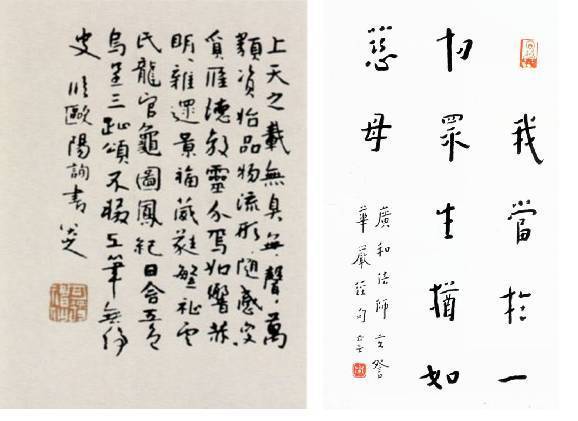 上天之載無臭無聲萬
類資始品物流形隨感變
質應德效靈介焉如響赫
明雜遝景福葳蕤繁祉雲
氏龍官龜圖鳳紀日含五色
烏呈三趾頌不輟工筆無停
史 臨歐陽詢書
我當於一
切眾生猶如
慈母
廣和法師
華嚴經句